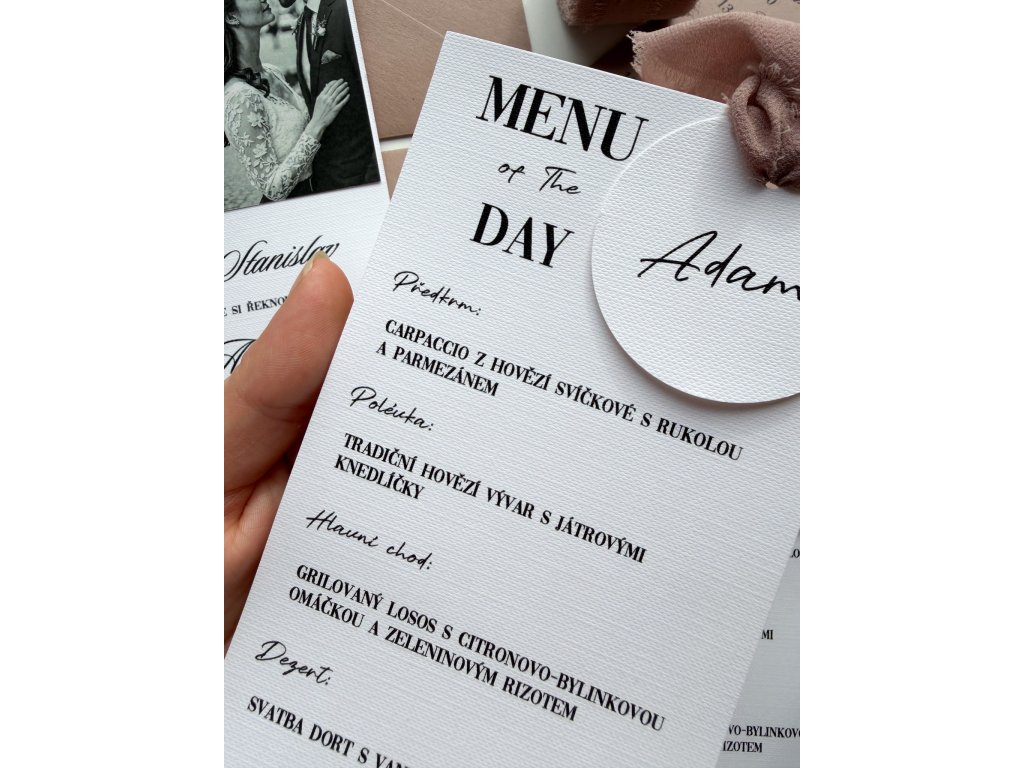 MENU
of The
DAY
Adam
Předkrm:
CARPACCIO Z HOVĚZÍ SVÍČKOVÉ S RUKOLOU
A PARMEZÁNEM
Polévka:
TRADIČNÍ HOVĚZÍ VÝVAR S JÁTROVÝMI
KNEDLÍČKY
Hlavní chod:
GRILOVANÝ LOSOS S CITRONOVO-BYLINKOVOU
OMÁČKOU A ZELENINOVÝM RIZOTEM
Dezert:
SVATBA DORT S
Stanislav
SI ŘEKNOU